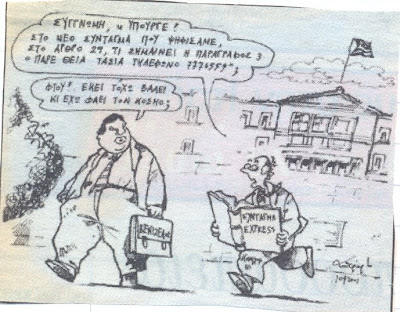 ΣΥΓΓΝΩΜΗ, κ ΥΠΟΥΡΓΕ!
ΣΤΟ ΝΕΟ ΣΥΝΤΑΓΜΑ ΠΟΥ ΨΗΦΙΣΑΜΕ,
ΣΤΟ ΑΡΘΡΟ 29, ΤΙ ΣΗΜΑΙΝΕΙ Η ΠΑΡΑΓΡΑΦΟΣ 3
"ΠΑΡΕ ΘΕΙΑ ΤΑΣΙΑ ΤΗΛΕΦΩΝΟ 7776554";
ΦΤΟΥ! ΕΚΕΙ ΤΟΧΩ ΒΑΛΕΙ
ΚΙ ΕΧΩ ΦΑΕΙ ΤΟΝ ΚΟΣΜΟ;
ΣΥΝΤΑΓΜΑ
EXPRESS